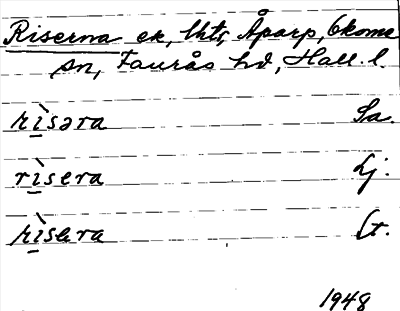 Riserna ek, lhts, Åparp, Ökome
sn, Faurås hd, Hall. l.
rìsəra Sa.
rìsera Lj.
rìsera Lt.
1948